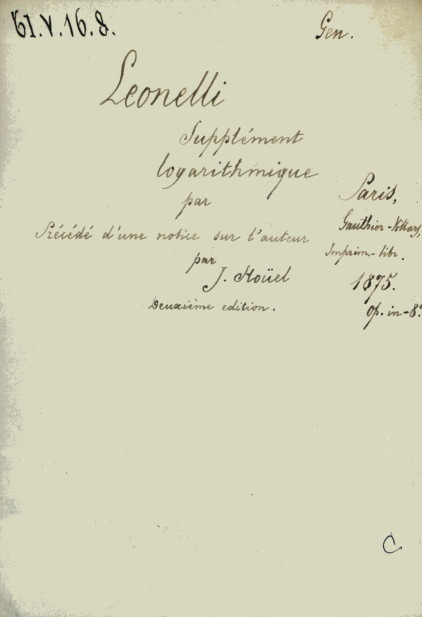 61.V.16.8.
Gen.
Leonelli
Supplément
logarithmique
par
Précédé d'une notice sur l'auteur
par
J. Hoüel
Deuxième edition.
Paris,
Gauthier-Villars,
Imprim.-libr.
1875.
Op. in-8º
C